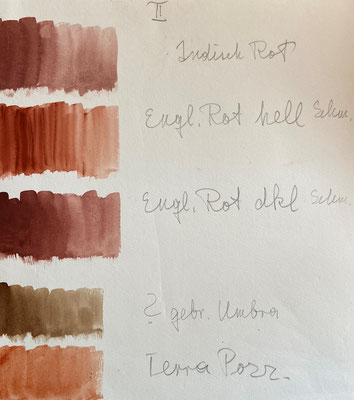 II
Indisch Rot
Engl. Rot hell Schm.
Engl. Rot dkl Schm.
? gebr. Umbra
Terra Pozz.